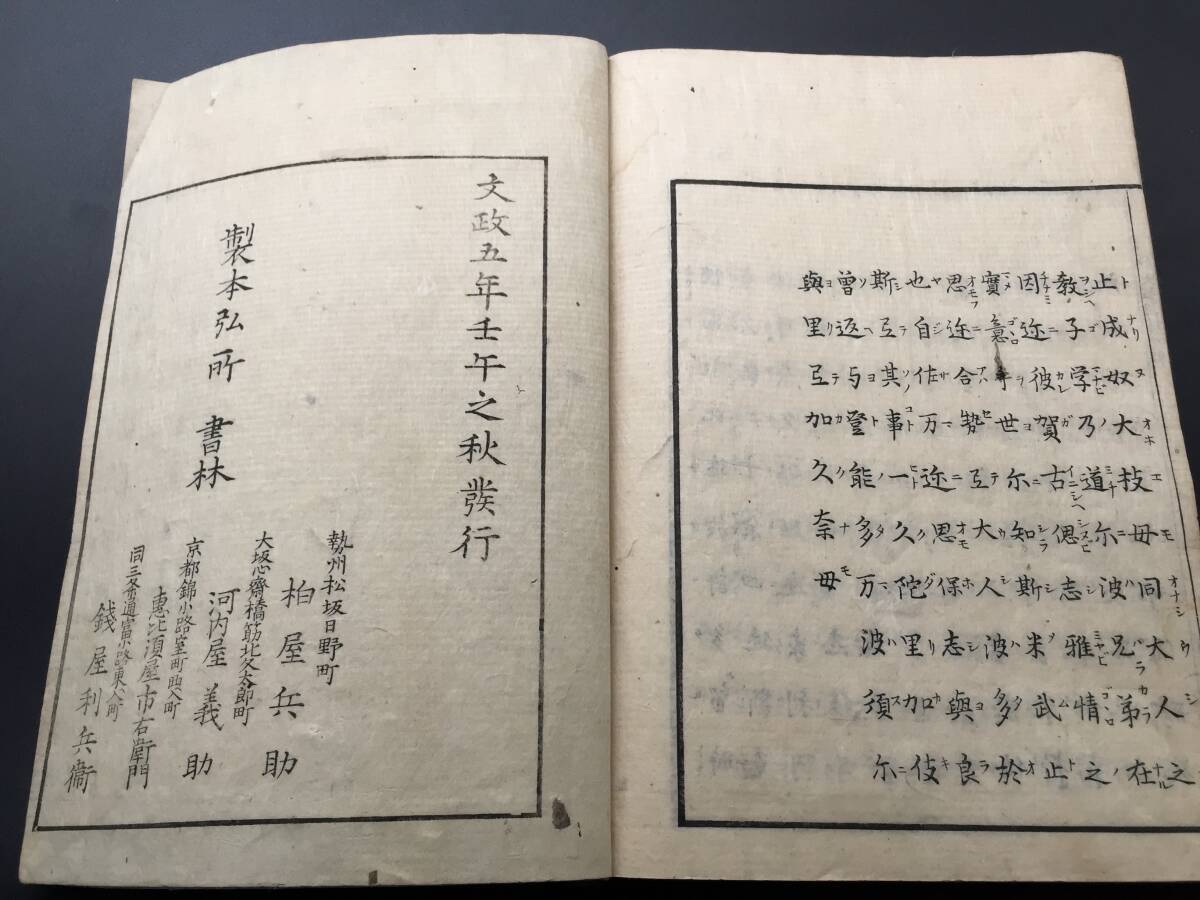 止成奴大枝母同大人之
教子学乃道尓波兄弟在
因迩彼賀古偲志雅情之
實意手世尓知斯米武止
思迩合勢弖大人波多於
也自佐万迩思保志與良
斯弖其事一久陀里加伎
曽返与登能多万波須尓
與里弖加久奈母
文政五年壬午之秋發行
製本弘所 書林
勢州松坂日野町
柏屋兵助
大坂心齋橋筋北久太郎町
河内屋義助
京都錦小路室町西入町
惠比須屋市右衛門
同三条通富小路東入町
錢屋利兵衞